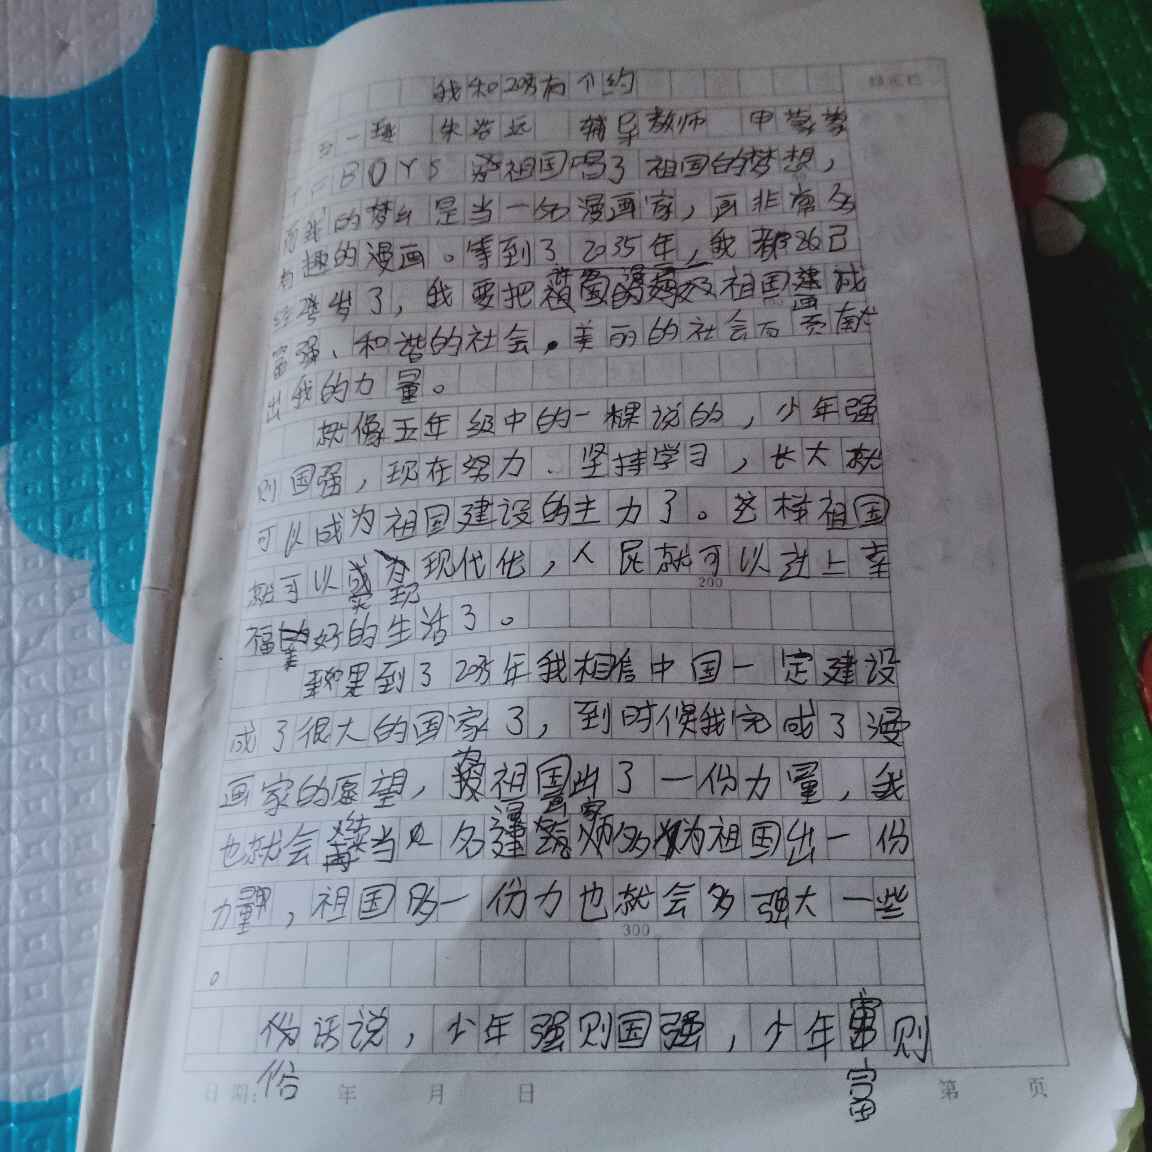 我和2035有个约
一班 朱浩远 辅导教师 申蒙蒙
TFBOYS 为祖国唱了祖国的梦想，
而我的梦乡是当一名漫画家，画非常多
有趣的漫画。等到了2035年，我都26已
经毕业了，我要把祖国建成
富强、和谐的社会，美丽的社会而贡献
出我的力量。
就像五年级中的一课说的，少年强
则国强，现在努力、坚持学习，长大就
可以成为祖国建设的主力了。这样祖国
就可以实现现代化，人民就可以过上幸
福美好的生活了。
如果到了2035年我相信中国一定建设
成了很大的国家了，到时候我完成了漫
画家的愿望，为祖国出了一份力量，我
也就会继当 名漫画家 为祖国出一份
力量，祖国多一份力也就会多强大一些
。
俗话说，少年强则国强，少年富则
日期： 年 月 日 第 页
200
300